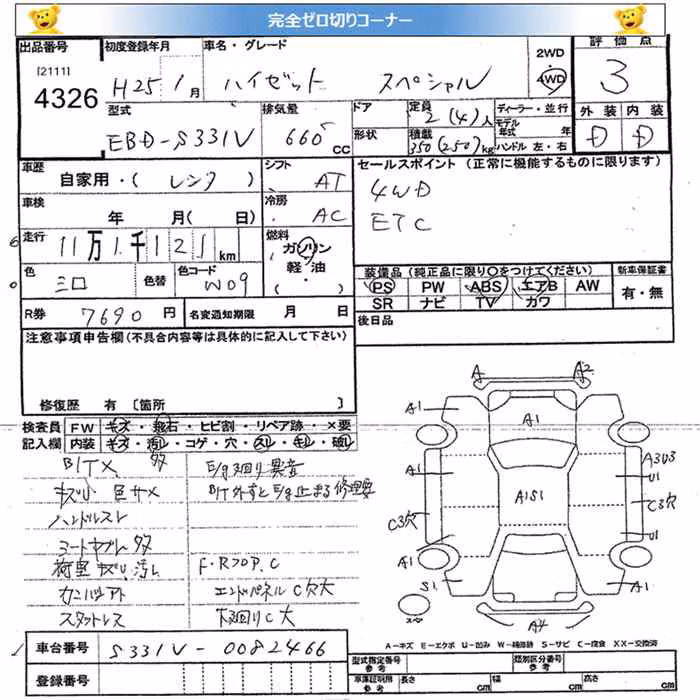 完全ゼロ切りコーナー
出品番号 初度登録年月 車名・グレード 2WD 4WD 評価点
[2111] 4326 H25 1月 ハイゼット スペシャル 3
型式 排気量 ドア 定員 2(4)人 ディーラー・並行 外装 内装
EBD-S331V 660 CC 形状 積載 350(250)kg モデル年式 年 ハンドル 左・右 D D
車歴 自家用・( レンタ ) シフト AT セールスポイント(正常に機能するものに限ります)
車検 年 月( 日) 冷房 AC 4WD
ETC
走行 11万1千121km 燃料 ガソリン 軽油
色 シロ 色替 色コード W09
装備品(純正品に限り○をつけてください) 新車保証書
PS PW ABS エアB AW 有・無
SR ナビ TV カワ
R券 7690円 名変通知期限 月 日 後日品
注意事項申告欄(不具合内容等は具体的に記入して下さい)
修復歴 有 〔箇所 〕
検査員 FW キズ・飛石・ヒビ割・リペア跡・×要
記入欄 内装 キズ・汚れ・コゲ・穴・スレ・キレ・破れ
キズ小 色サメ
ハンドルスレ
シートヤブレ 多
荷室キズ、汚レ F・RフロアP.C
エンドパネルC穴大
スタットレス 下廻りC大
E/g廻り異音
A A2
A1 A1
A1 A1S1 A3U3 U1
C3穴 C3穴
U1
A1 S1 A1
A4
スペア
A-キズ E-エクボ U-凹み W-補修跡 S-サビ C-腐食 XX-交換済
車台番号 S331V-0082466
登録番号
型式指定番号 参考 類別区分番号 参考
車庫証明用 参考 長さ cm 幅 cm 高さ cm